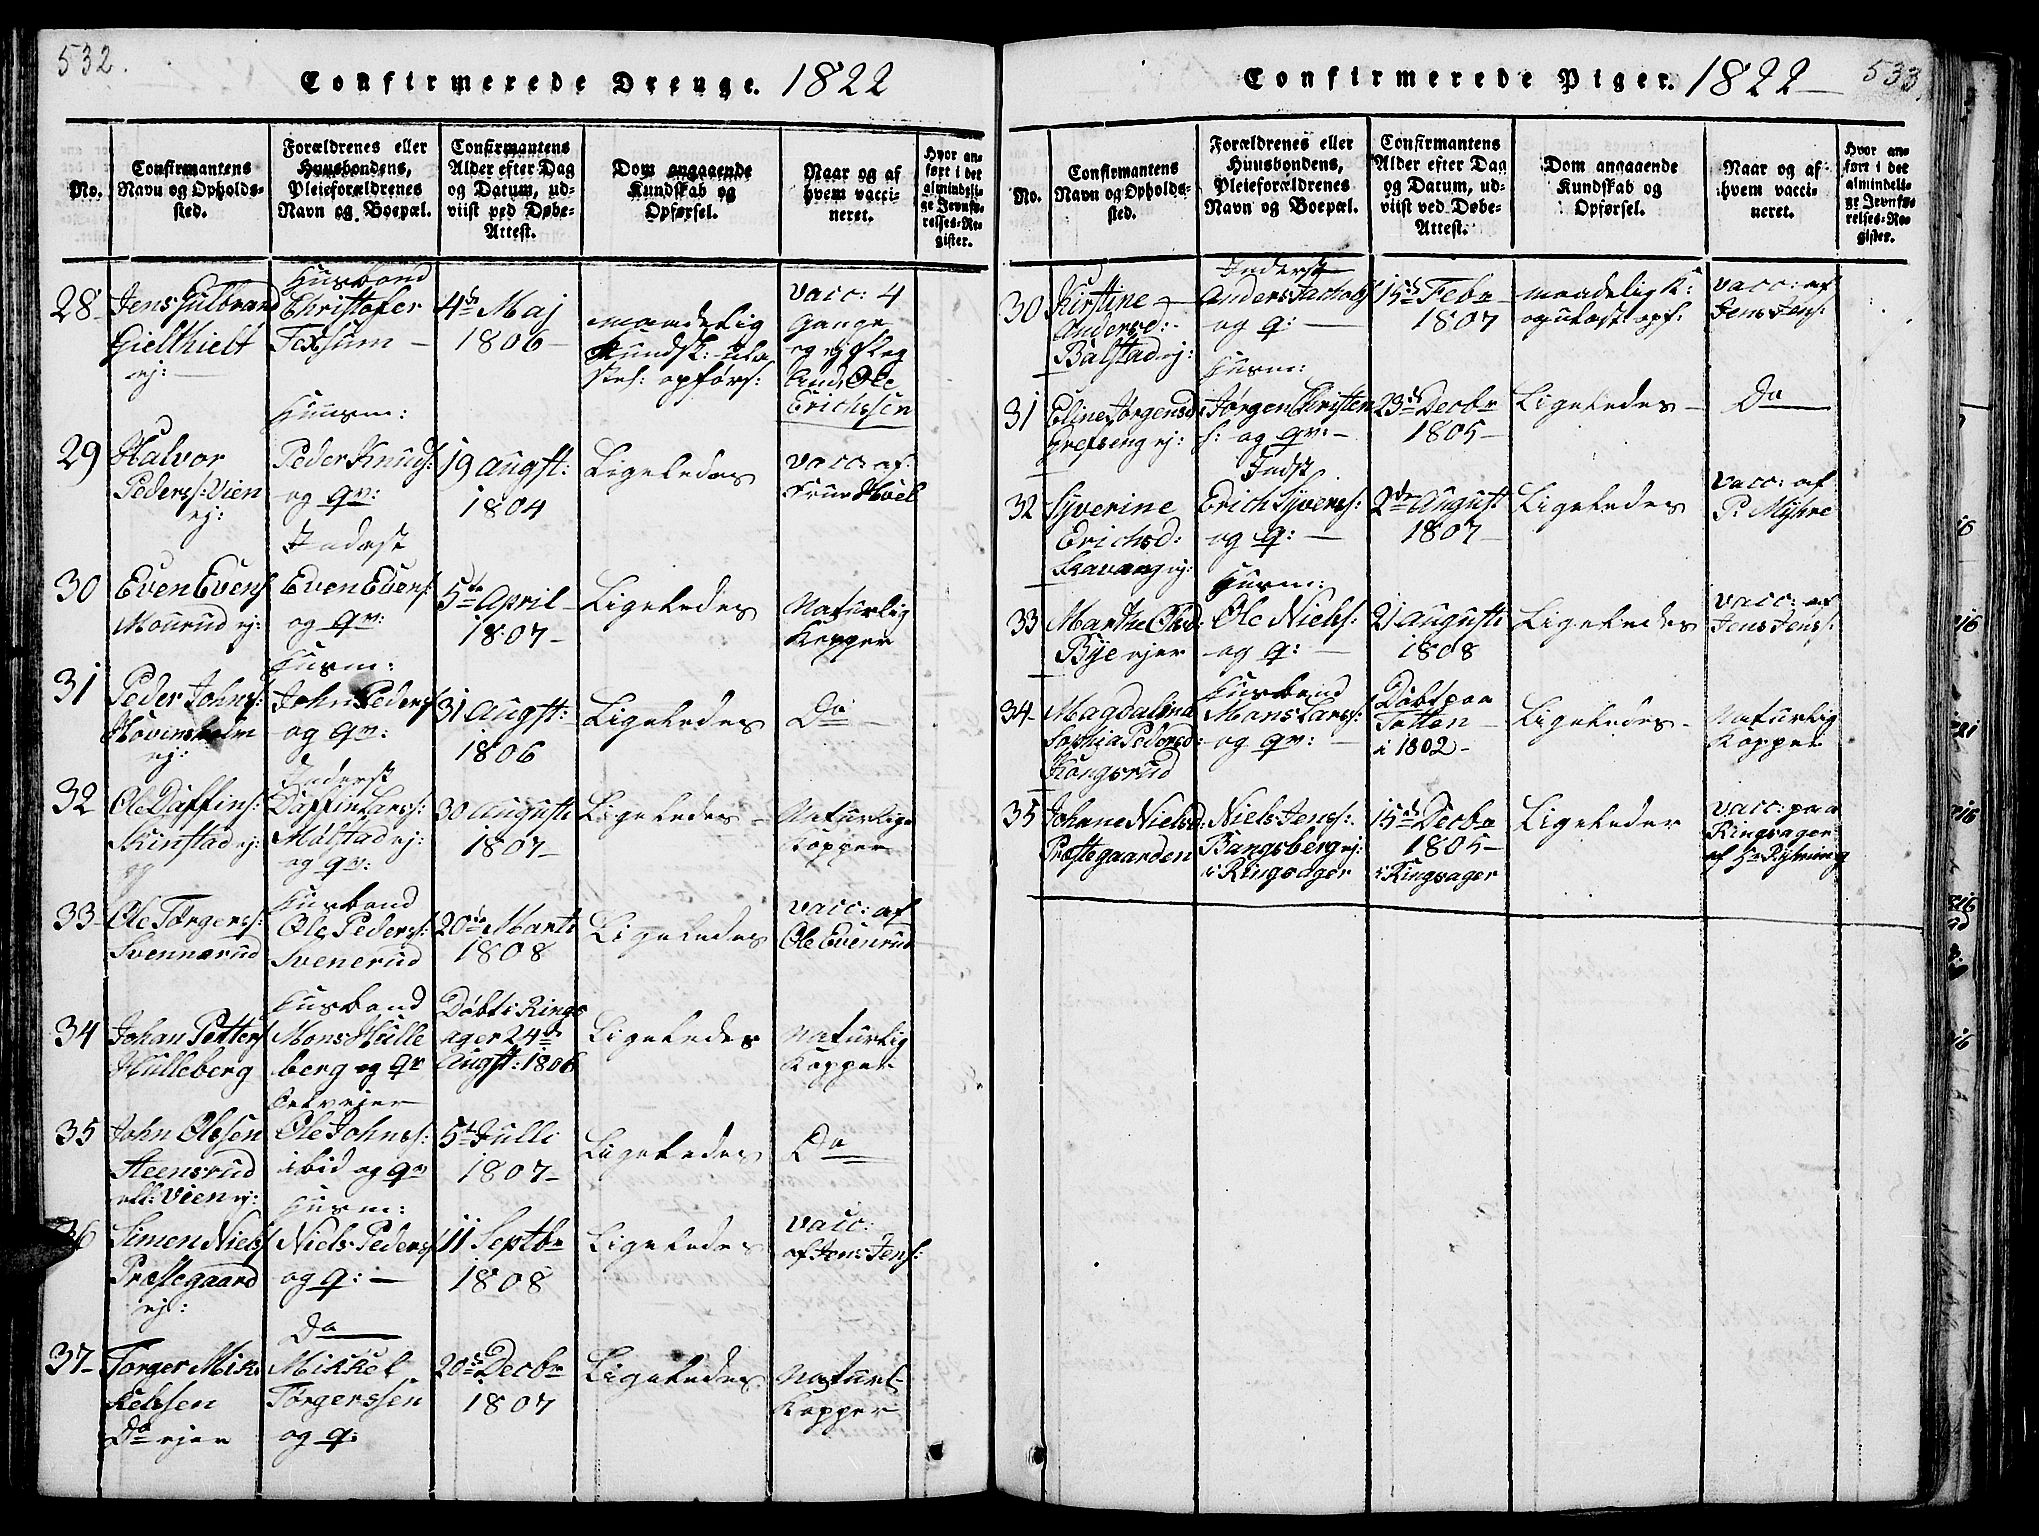 532.
Confirmerede Drenge. 1822
No.
Confirmantens
Navn og Opholds-
sted.
Forældrenes eller
Huusbondens,
Pleieforældrenes
Navn og Boepæl.
Confirmantens
Alder efter Dag
og Datum, ud-
viist ved Døbe-
Attest.
Dom angaaende
Kundskab og
Opførsel.
Naar og af
hvem vacci-
neret.
Hvor an-
ført i det
almindeli-
ge Jevnfø-
relses-Re-
gister.
28
Jens Gulbrand
Gielthielt
ej:
Husbond
Christofer
Fexsum
4de Maj
1806
maadelig
Kundsk: ula
stel: opførs:
vacc: 4
Gange
Ole
Erichssen
29
Halvor
Peders: Vien
ej:
Huusm:
Peder Knuds:
og qv:
19 Augst:
1804
Ligeledes
vacc: af
Frue Hoel
30
Even Evens
Mourud ej:
Inderst
Even Evens:
og qv:
5te April
1807
Ligeledes
Naturlig
Kopper
31
Peder Johns:
Hovinsholm
ej:
Husm:
John Peders
og qv:
31 Augst:
1806
Ligeledes
Do
32
Ole Daffins:
Skinstad ej:
Inderst
Daffin Lars:
Molstad ej:
og qv:
30 August:
1807
Ligeledes
Naturlige
Kopper
33
Ole Torgers:
Svennerud
Husbond
Ole Peders:
Svenerud
20de Marti
1808
Ligeledes
vacc: af
Ole Evenrud
34
Johan Petters
Hulleberg
Husbond
Mons Hulle
berg og qv
Døbt i Rings
ager 24de
Augst: 1806
Ligeledes
Naturlig
Kopper
35
John Olssen
Steensrud
ell: Vien ej:
Selvejer
Ole Johns:
ibid og qv
5te Julli
1807
Ligeledes
Do
36
Simen Niels
Præstegaard
ej:
Husm:
Niels Peders
og q:
11 Septbr
1808
Ligeledes
vacc:
af Jens Jens:
37
Torger Mik
kelssen
Do ejer
Do
Mikkel
Torgerssen
og q:
20de Decbr
1807
Ligeledes
Naturl
Kopper
533.
Confirmerede Piger. 1822
No.
Confirmantens
Navn og Opholds-
sted.
Forældrenes eller
Huusbondens,
Pleieforældrenes
Navn og Boepæl.
Confirmantens
Alder efter Dag
og Datum, ud-
viist ved Døbe-
Attest.
Dom angaaende
Kundskab og
Opførsel.
Naar og af
hvem vacci-
neret.
Hvor an-
ført i det
almindeli-
ge Jevnfø-
relses-Re-
gister.
30
Kirstine
Andersd:
Balstad ej:
Inderst
Anders Jacobs
og q:
15de Febr
1807
maadelig K:
og ulast: opf:
vacc: af
Jens Jens:
31
Eline Jørgensd:
Grefseng ej:
Husm:
Jørgen Christen
s: og qv:
23de Decbr
1805
Ligeledes
Do
32
Syverine
Erichsd:
Skavang ej:
Indst
Erich Syvers:
og q:
2den August
1807
Ligeledes
vacc: af
P: Myhre
33
Marthe Olsd:
Bye ejer
Husm:
Ole Niels:
og q:
21 August:
1808
Ligeledes
vacc: af
Jens Jens:
34
Magdalina
Sophia Pedersd:
Kongsrud
Husbond
Mons Lars:
og qv:
Døbt paa
Totten
i 1802
Ligeledes
Naturlig
Kopper
35
Johane Nielsd:
Præstegaarden
Niels Jens:
Bangsberg ej:
i Ringsager
15de Decbr
1805
i Ringsager
Ligeledes
vacc: paa
Ringsager